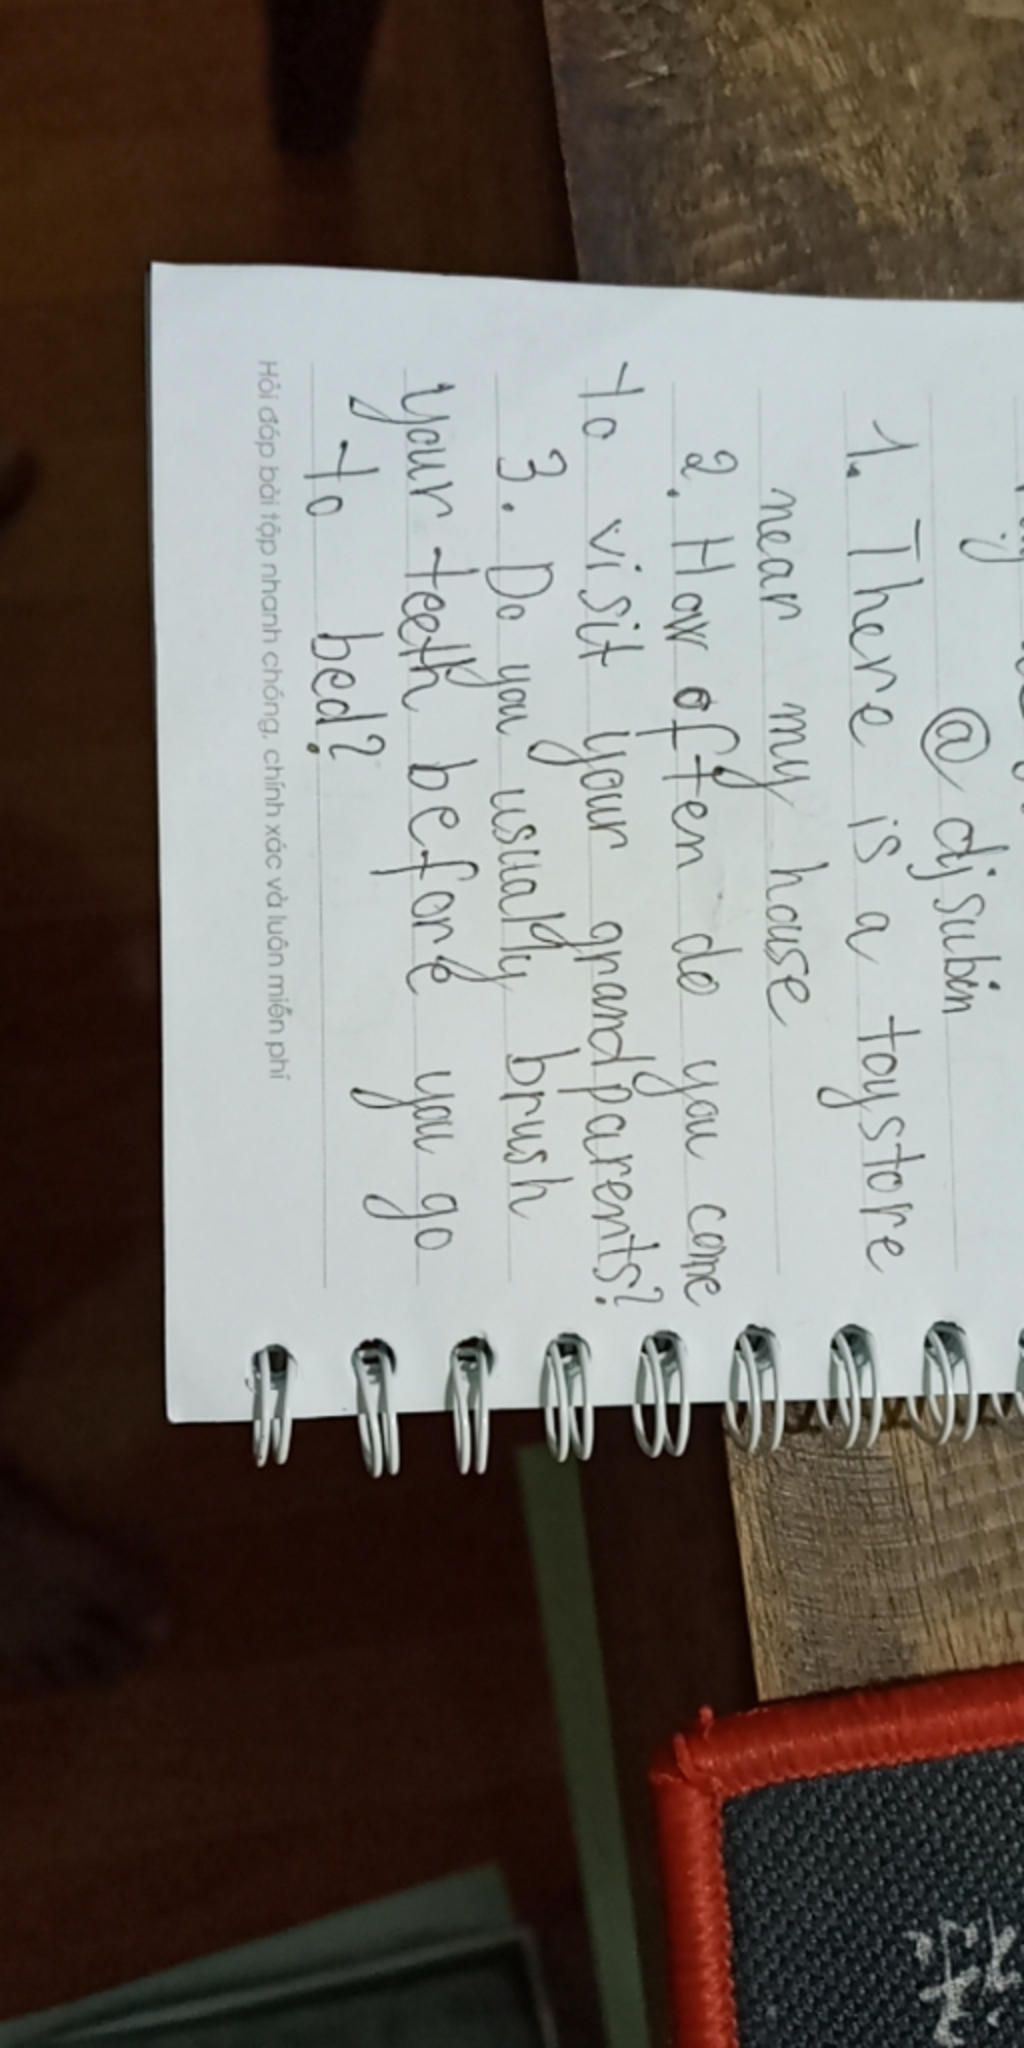 @djsubin
1. There is a toystore
near my house
2. How often do you come
to visit your grandparents?
3. Do you usually brush
your teeth before you go
to bed?
Hỏi đáp bài tập nhanh chóng, chính xác và luôn miễn phí